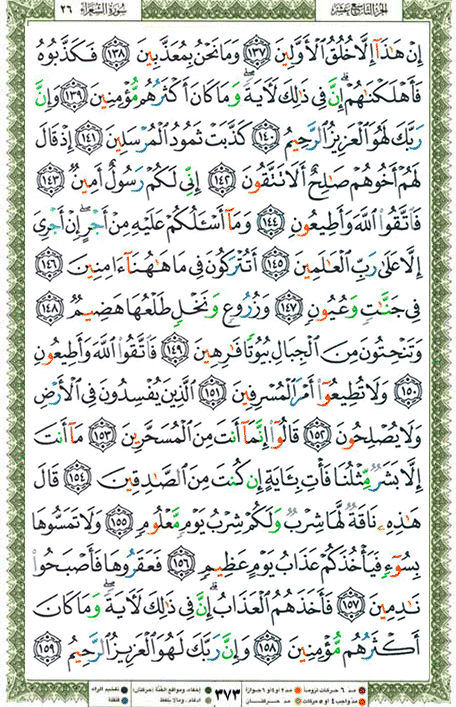 الجزء التاسع عشر
سورة الشعراء ٢٦
إِنْ هَٰذَآ إِلَّا خُلُقُ ٱلْأَوَّلِينَ ١٣٧ وَمَا نَحْنُ بِمُعَذَّبِينَ ١٣٨ فَكَذَّبُوهُ
فَأَهْلَكْنَٰهُمْ ۗ إِنَّ فِى ذَٰلِكَ لَـَٔايَةً ۖ وَمَا كَانَ أَكْثَرُهُم مُّؤْمِنِينَ ١٣٩ وَإِنَّ
رَبَّكَ لَهُوَ ٱلْعَزِيزُ ٱلرَّحِيمُ ١٤٠ كَذَّبَتْ ثَمُودُ ٱلْمُرْسَلِينَ ١٤١ إِذْ قَالَ
لَهُمْ أَخُوهُمْ صَٰلِحٌ أَلَا تَتَّقُونَ ١٤٢ إِنِّى لَكُمْ رَسُولٌ أَمِينٌ ١٤٣
فَٱتَّقُوا۟ ٱللَّهَ وَأَطِيعُونِ ١٤٤ وَمَآ أَسْـَٔلُكُمْ عَلَيْهِ مِنْ أَجْرٍ ۖ إِنْ أَجْرِىَ
إِلَّا عَلَىٰ رَبِّ ٱلْعَٰلَمِينَ ١٤٥ أَتُتْرَكُونَ فِى مَا هَٰهُنَآ ءَامِنِينَ ١٤٦
فِى جَنَّٰتٍ وَعُيُونٍ ١٤٧ وَزُرُوعٍ وَنَخْلٍ طَلْعُهَا هَضِيمٌ ١٤٨
وَتَنْحِتُونَ مِنَ ٱلْجِبَالِ بُيُوتًا فَٰرِهِينَ ١٤٩ فَٱتَّقُوا۟ ٱللَّهَ وَأَطِيعُونِ
١٥٠ وَلَا تُطِيعُوٓا۟ أَمْرَ ٱلْمُسْرِفِينَ ١٥١ ٱلَّذِينَ يُفْسِدُونَ فِى ٱلْأَرْضِ
وَلَا يُصْلِحُونَ ١٥٢ قَالُوٓا۟ إِنَّمَآ أَنتَ مِنَ ٱلْمُسَحَّرِينَ ١٥٣ مَآ أَنتَ
إِلَّا بَشَرٌ مِّثْلُنَا فَأْتِ بِـَٔايَةٍ إِن كُنتَ مِنَ ٱلصَّٰدِقِينَ ١٥٤ قَالَ
هَٰذِهِۦ نَاقَةٌ لَّهَا شِرْبٌ وَلَكُمْ شِرْبُ يَوْمٍ مَّعْلُومٍ ١٥٥ وَلَا تَمَسُّوهَا
بِسُوٓءٍ فَيَأْخُذَكُمْ عَذَابُ يَوْمٍ عَظِيمٍ ١٥٦ فَعَقَرُوهَا فَأَصْبَحُوا۟
نَٰدِمِينَ ١٥٧ فَأَخَذَهُمُ ٱلْعَذَابُ ۗ إِنَّ فِى ذَٰلِكَ لَـَٔايَةً ۖ وَمَا كَانَ
أَكْثَرُهُم مُّؤْمِنِينَ ١٥٨ وَإِنَّ رَبَّكَ لَهُوَ ٱلْعَزِيزُ ٱلرَّحِيمُ ١٥٩
مد ٦ حركات لزوماً مد ٢ او ٤ او ٦ جوازاً
مد واجب ٤ او ٥ حركات مد حركتان
٣٧٣
إخفاء، ومواقع الغنة (حركتان) تفخيم الراء
ادغام، وما لا يلفظ قلقلة